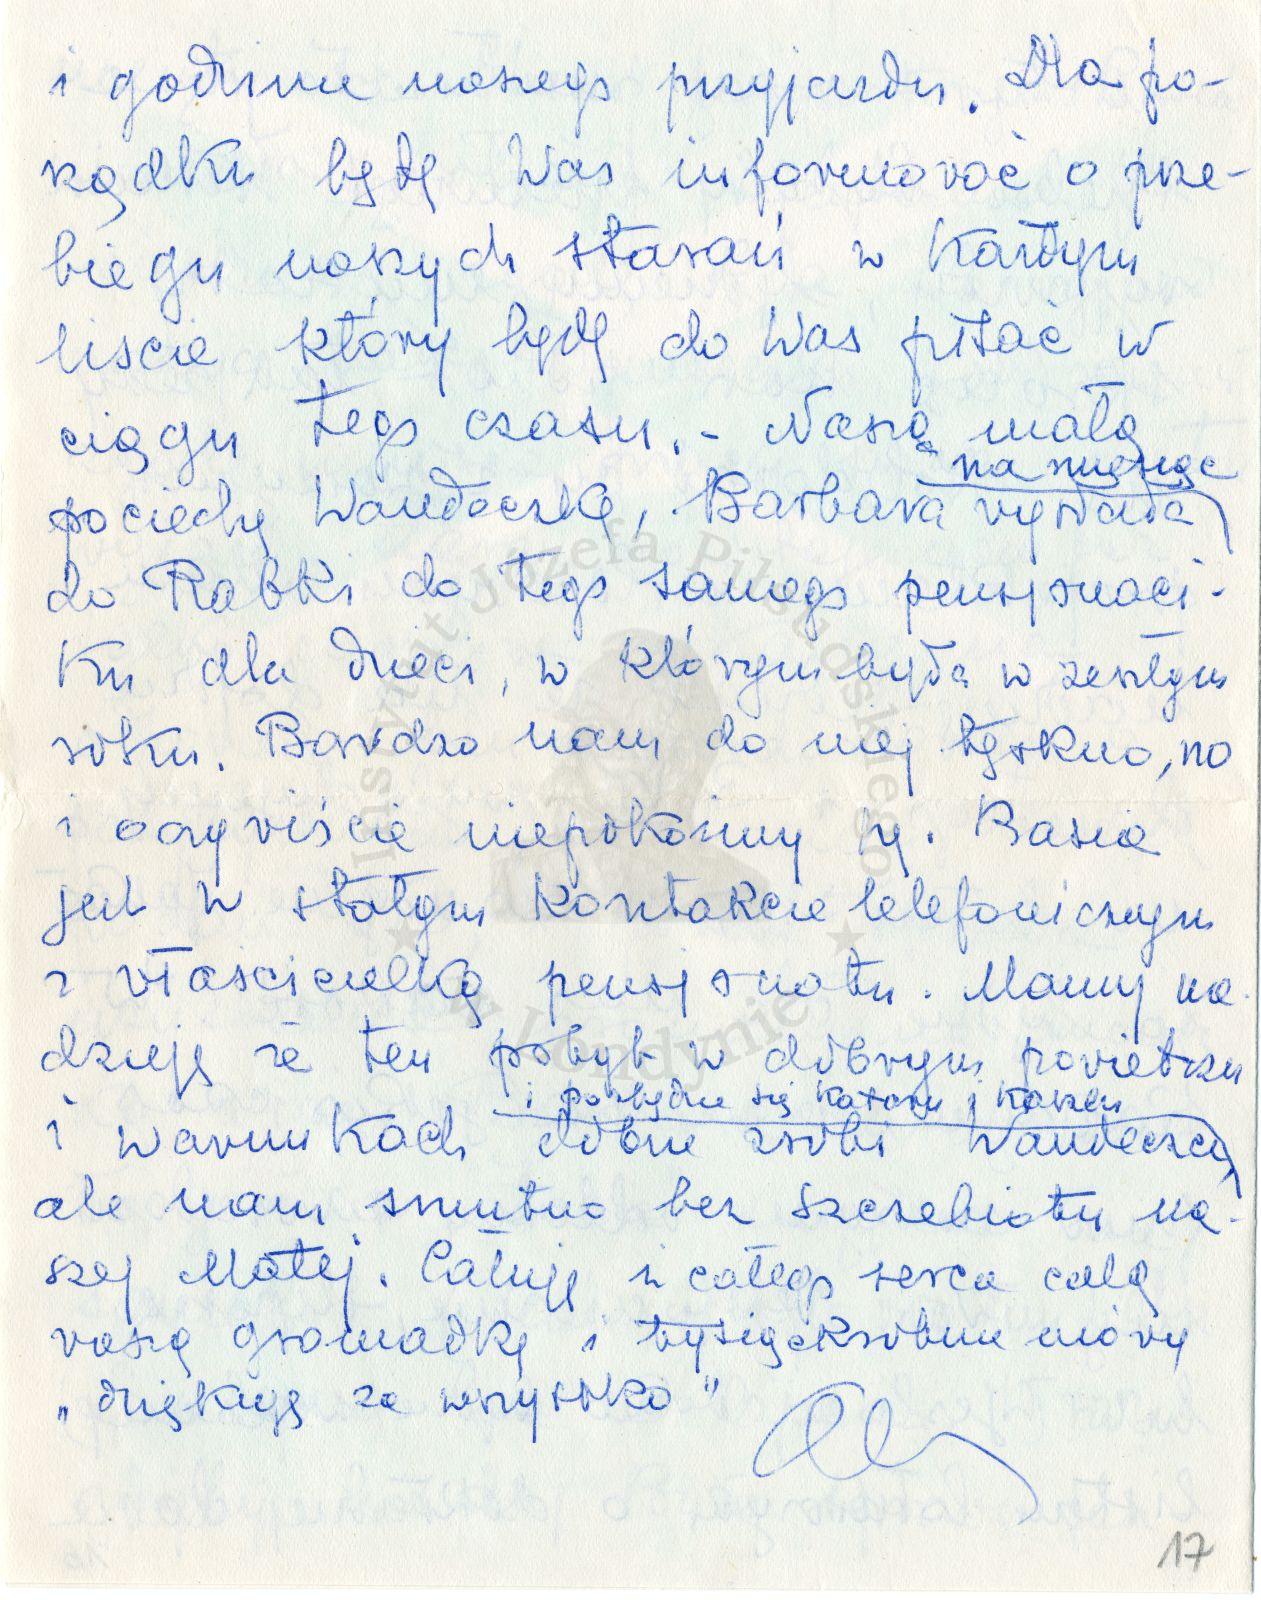 i godzinę naszego przyjazdu. Dla po-
rządku będę Was informować o prze-
biegu naszych starań w każdym
liście który będę do Was pisać w
ciągu tego czasu. - Naszą małą
na miesiąc
pociechę Wandeczkę, Barbara wysłała
do Rabki do tego samego pensjonaci-
ku dla dzieci, w którym była w zeszłym
roku. Bardzo nam do niej tęskno, no
i oczywiście niepokoimy się. Basia
jest w stałym kontakcie telefonicznym
z właścicielką pensjonatu. Mamy na-
dzieję że ten pobyt w dobrym powietrzu
i pozbędzie się kataru i kaszlu
i warunkach dobrze zrobi Wandeczce,
ale nam smutno bez szczebiotu na-
szej Małej. Całuję z całego serca całą
waszą gromadkę i tysiąckrotnie mówię
„dziękuję za wszystko”
17
Instytut Józefa Piłsudskiego
w Londynie